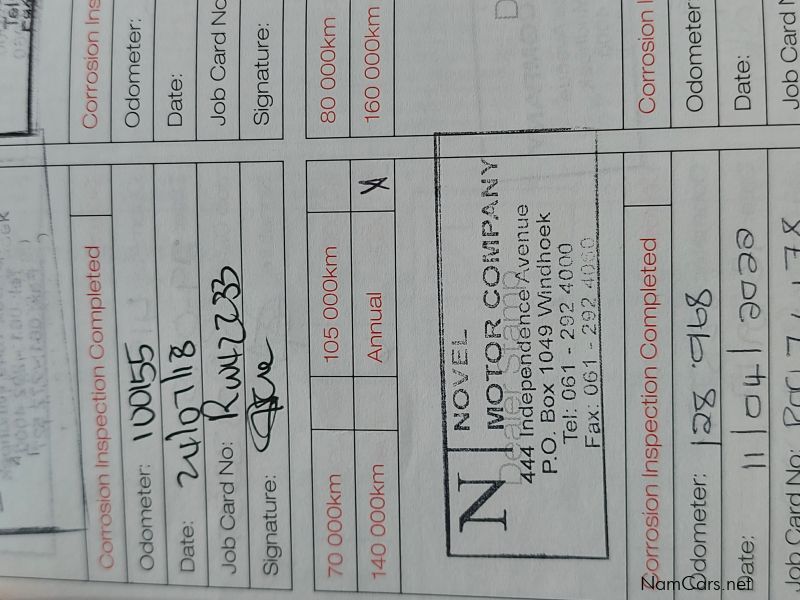 Corrosion Inspection Completed
Odometer: 100155
Date: 24/07/18
Job Card No: RW42233
Signature:
70 000km 105 000km
140 000km Annual X
N NOVEL
MOTOR COMPANY
Dealer Stamp
444 Independence Avenue
P.O. Box 1049 Windhoek
Tel: 061 - 292 4000
Fax: 061 - 292 4060
Corrosion Inspection Completed
Odometer: 128 968
Date: 11/04/2022
Job Card No:
Corrosion Ins
Odometer:
Date:
Job Card No
Signature:
80 000km
160 000km
D
Corrosion I
Odometer
Date:
Job Card N
NamCars.net